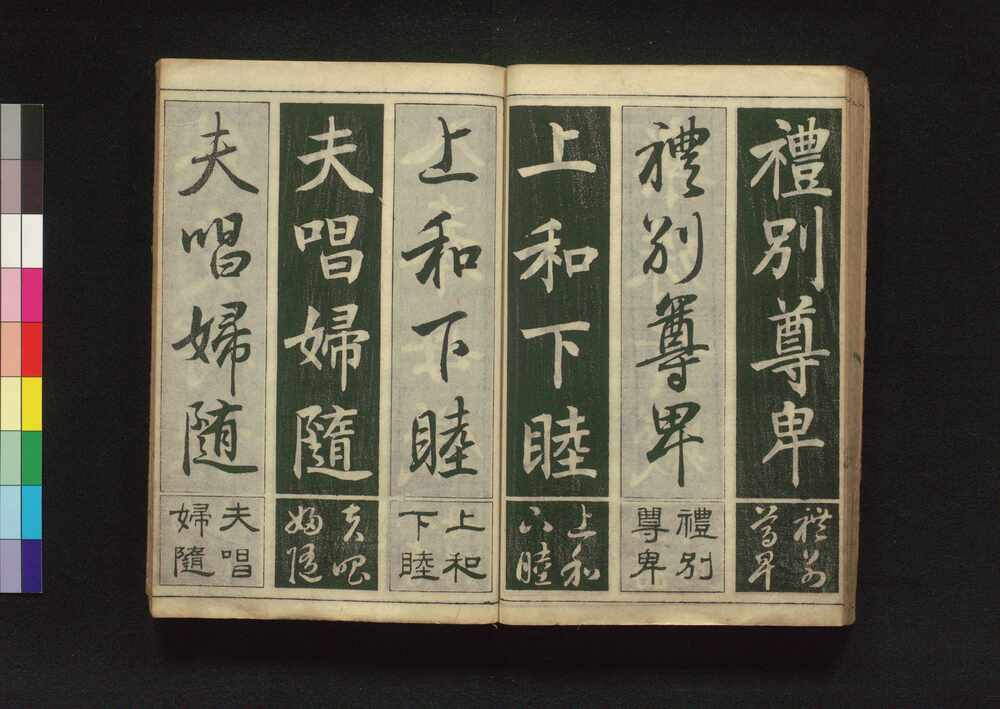 禮別尊卑
禮別
尊卑
禮別尊卑
禮別
尊卑
上和下睦
上和
下睦
上和下睦
上和
下睦
夫唱婦隨
夫唱
婦隨
夫唱婦随
夫唱
婦隨